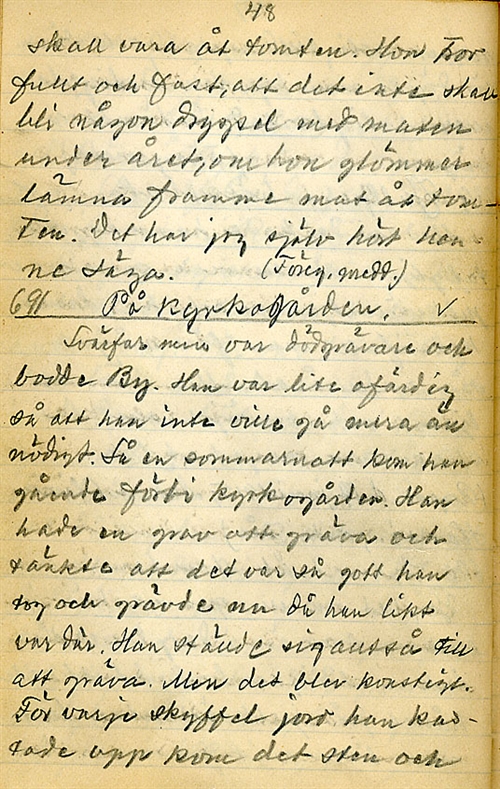 48
skall vara åt tomten. Hon tror
fullt och fast, att det inte skall
bli någon drygsel med maten
under året, om hon glömmer
lämna framme mat åt tom-
ten. Det har jag själv hört hen-
ne säga. (Föreg. medd.)
691 På kyrkogården. ✓
Svärfar min var dödgrävare och
bodde By. Han var lite ofärdig
så att han inte ville gå mera än
nödigt. Så en sommarnatt kom han
gående förbi kyrkogården. Han
hade en grav att gräva och
tänkte att det var så gott han
tog och grävde nu då han likt
var där. Han stände sig alltså till
att gräva. Men det blev konstigt.
För varje skyffel jord han kas-
tade upp kom det sten och